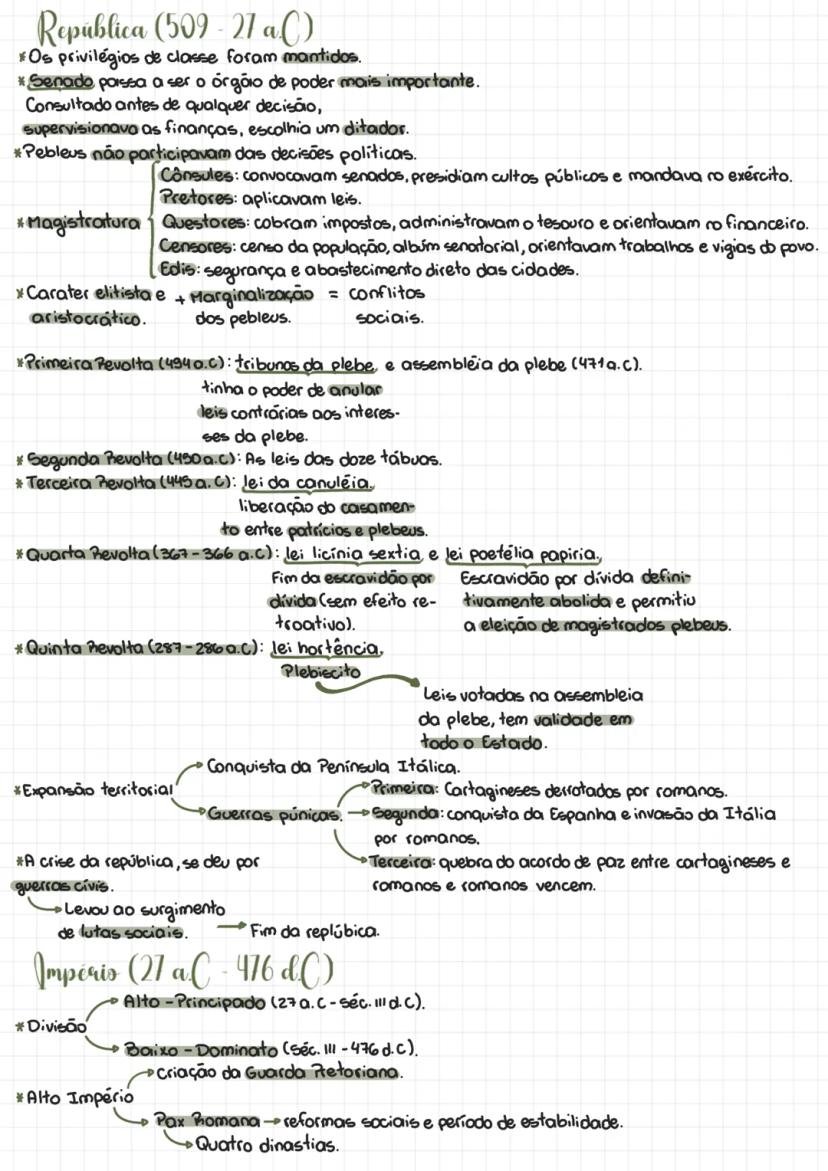 República (509 - 27 a.C)
*Os privilégios de classe foram mantidos.
*Senado passa a ser o órgão de poder mais importante.
Consultado antes de qualquer decisão,
supervisionava as finanças, escolhia um ditador.
*Pebleus não participavam das decisões políticas.
Cônsules: convocavam senados, presidiam cultos públicos e mandava no exército.
Pretores: aplicavam leis.
*Magistratura Questores: cobram impostos, administravam o tesouro e orientavam no financeiro.
Censores: censo da população, albúm senatorial, orientavam trabalhos e vigias do povo.
Edis: segurança e abastecimento direto das cidades.
*Carater elitista e + Marginalização = conflitos
aristocrático. dos pebleus. sociais.
*Primeira Revolta (494 a.C): tribunos da plebe, e assembléia da plebe (471 a.C).
tinha o poder de anular
leis contrárias aos interes-
ses da plebe.
*Segunda Revolta (450 a.C): As leis das doze tábuas.
*Terceira Revolta (445 a.C): lei da canuléia,
liberação do casamen-
to entre patrícios e plebeus.
*Quarta Revolta (367 - 366 a.C): lei licínia sextia, e lei poetélia papiria,
Fim da escravidão por Escravidão por dívida defini-
dívida (sem efeito re- tivamente abolida e permitiu
troativo). a eleição de magistrados plebeus.
*Quinta Revolta (287 - 286 a.C): lei hortência,
Plebiscito
Leis votadas na assembleia
da plebe, tem validade em
todo o Estado.
Conquista da Península Itálica.
*Expansão territorial Primeira: Cartagineses derrotados por romanos.
Guerras púnicas. Segunda: conquista da Espanha e invasão da Itália
por romanos.
*A crise da república, se deu por Terceira: quebra do acordo de paz entre cartagineses e
guerras civis. romanos e romanos vencem.
Levou ao surgimento
de lutas sociais. Fim da replúbica.
Império (27 a.C - 476 d.C)
Alto - Principado (27 a.C - séc. III d.C).
*Divisão
Baixo - Dominato (Séc. III - 476 d.C).
criação da Guarda Pretoriana.
*Alto Império
Pax Romana reformas sociais e período de estabilidade.
Quatro dinastias.